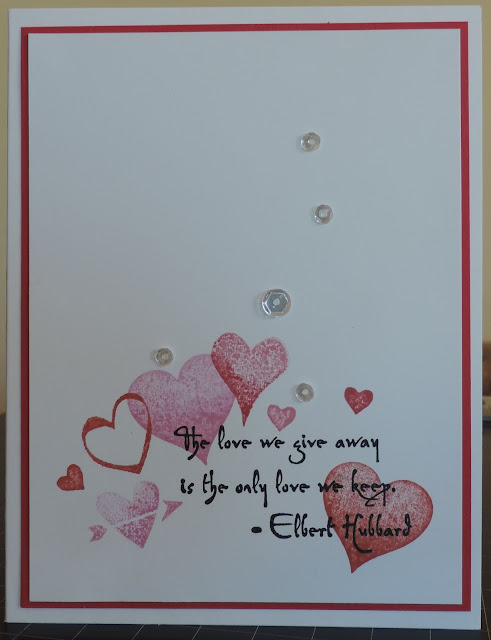 The love we give away
is the only love we keep.
- Elbert Hubbard